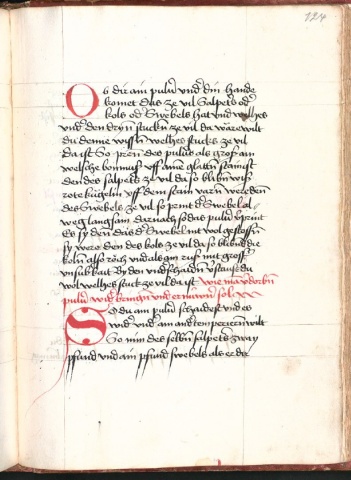 124
Ob dir ain pulver under din hande
komet das ze vil Salpeters oder
kols oder Swebels hat und welhes
under den dryn stucken ze vil da wäre wilt
du denne wissen welhes stucks ze vil
da ist So pren des pulvers als gross ain
welsche bonn uff aine glatten stain ist
den des salpeters ze vil da so bliben wiss
rote kügelin uff dem stain waren werden
des Swebels ze vil so print der Swebel al
weg langsam darnach so das pulver verprint
es sy den die der Swebel nit wol gestossen
sy wäre den des kols ze vil da so blibend die
koln also roch und als ain rus mit gross
unsubrkait By den underschaiden verstaust du
wol welhes stuck ze vil da ist wie man verdorben
pulver wider bringen und ernuwern sol
So du ain pulver schydest und es
wider under ain ander temperieren wilt
So nim des selben salpeters zway
pfund und ain pfund swebels als er die